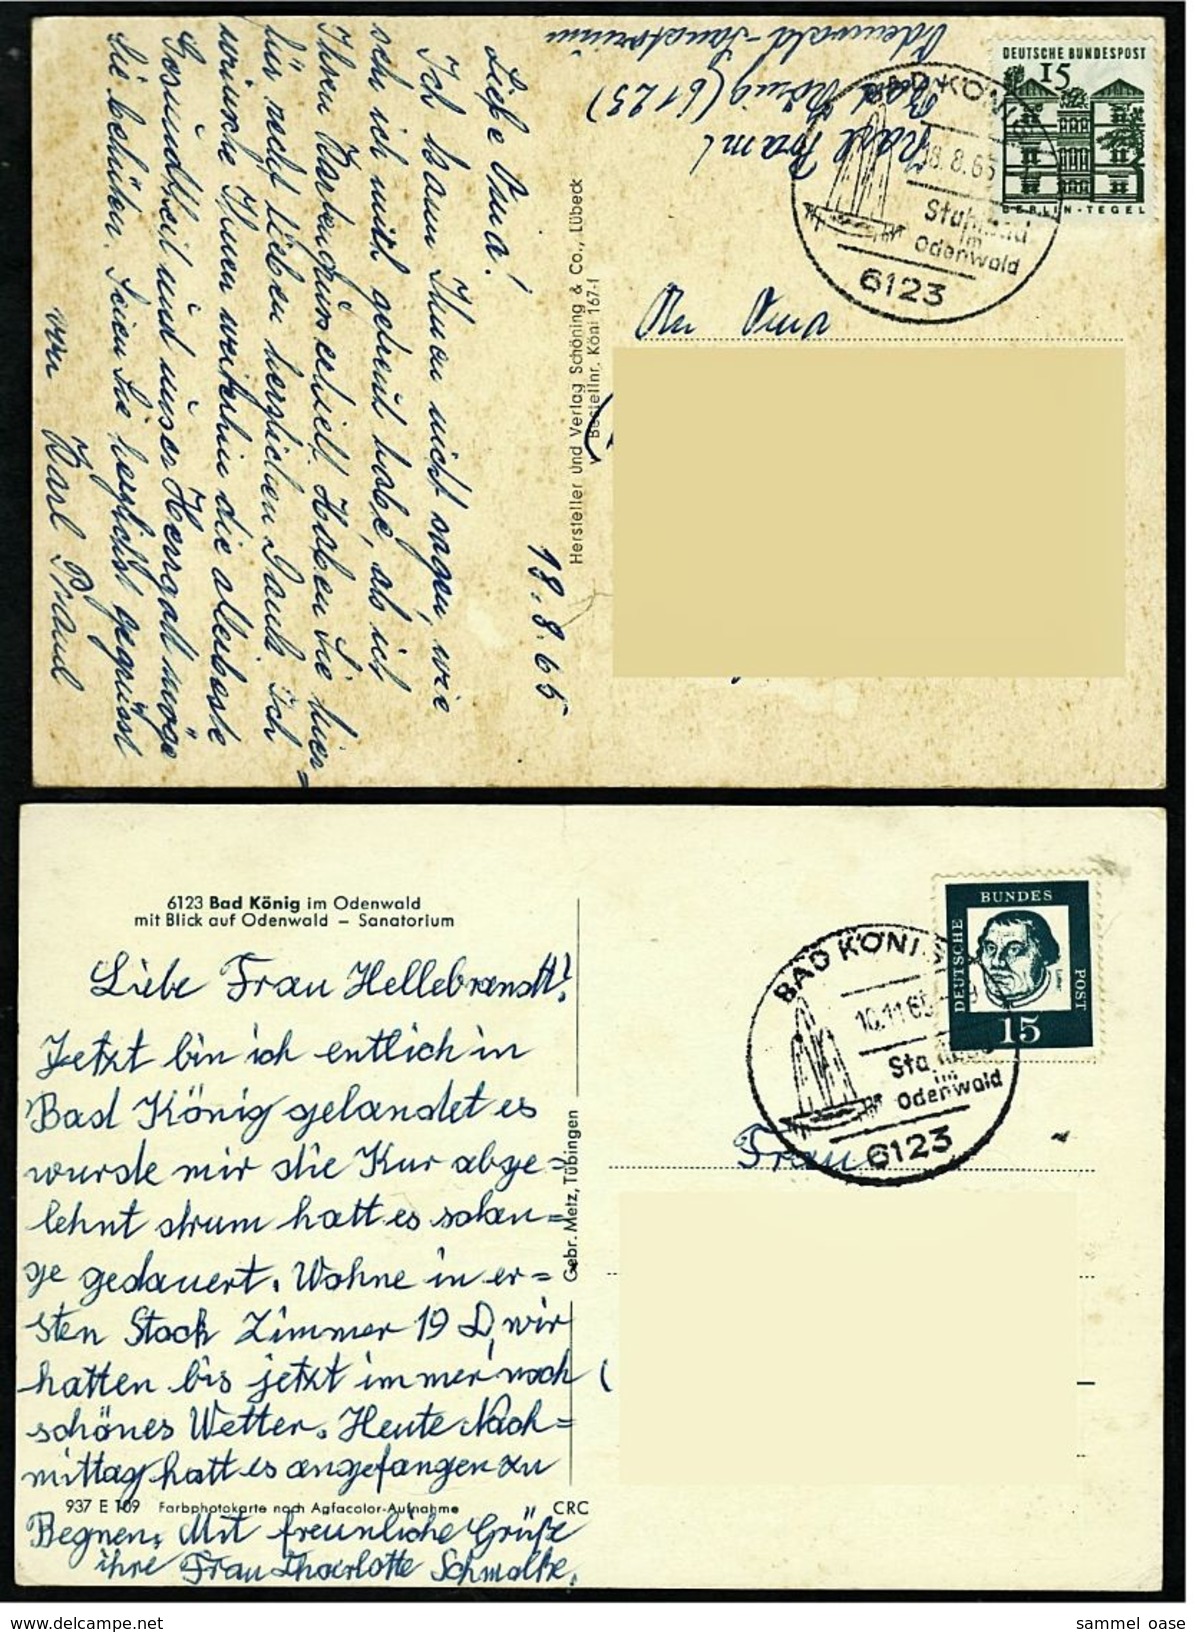 18.8.65
Liebe Oma!
Ich kann Ihnen nicht sagen, wie
sehr ich mich gefreut habe, als ich
Ihren Kartengruss erhielt. Haben Sie hier=
für recht lieben herzlichen Dank. Ich
wünsche Ihnen weiterhin die allerbeste
Gesundheit und unser Herrgott möge
Sie behüten. Seien Sie herzlichst gegrüsst
von Karl
Karl
Bad König (6123)
Odenwald-Sanatorium
DEUTSCHE BUNDESPOST
15
BERLIN-TEGEL
BAD KÖNIG
18.8.65
Stahlbad
im
Odenwald
6123
An Oma
Hersteller und Verlag Schöning & Co., Lübeck
Bestellnr. Köni 167-I
6123 Bad König im Odenwald
mit Blick auf Odenwald – Sanatorium
Liebe Frau Hellebrandt!
Jetzt bin ich entlich in
Bad König gelandet es
wurde mir die Kur abge=
lehnt drum hatt es solan=
ge gedauert. Wohne in er=
sten Stock Zimmer 19 D, wir
hatten bis jetzt immer noch
schönes Wetter. Heute Nach=
mittag hatt es angefangen zu
Regnen. Mit freunliche Grüße
ihre Frau Charlotte Schmaltz.
937 E 109 Farbphotokarte nach Agfacolor-Aufnahme CRC
Gebr. Metz, Tübingen
DEUTSCHE
BUNDES
POST
15
BAD KÖNI
10.11.65
Sta
im
Odenwald
6123
Frau
www.delcampe.net
sammel_oase